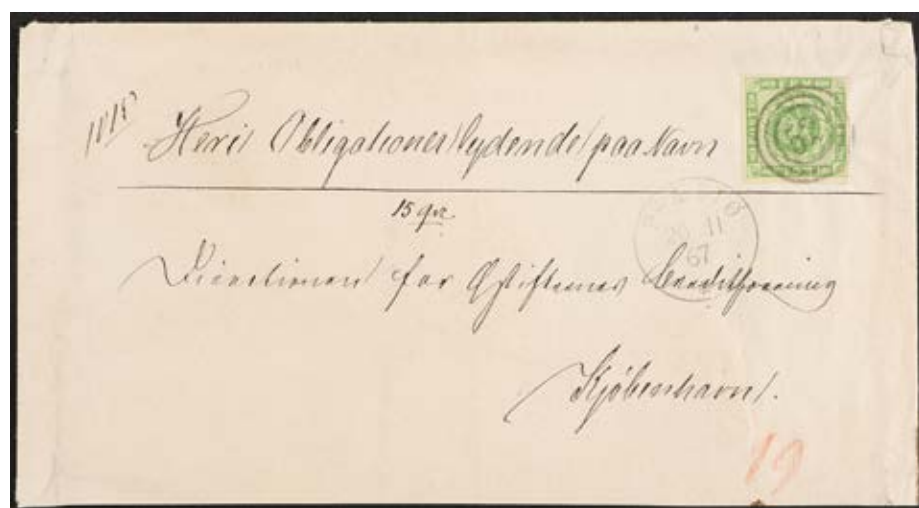 Heri Obligationer lydende paa Navn
15 qvt
Directionen for Østifternes Creditforening
Kjöbenhavn.
20 11
67
19